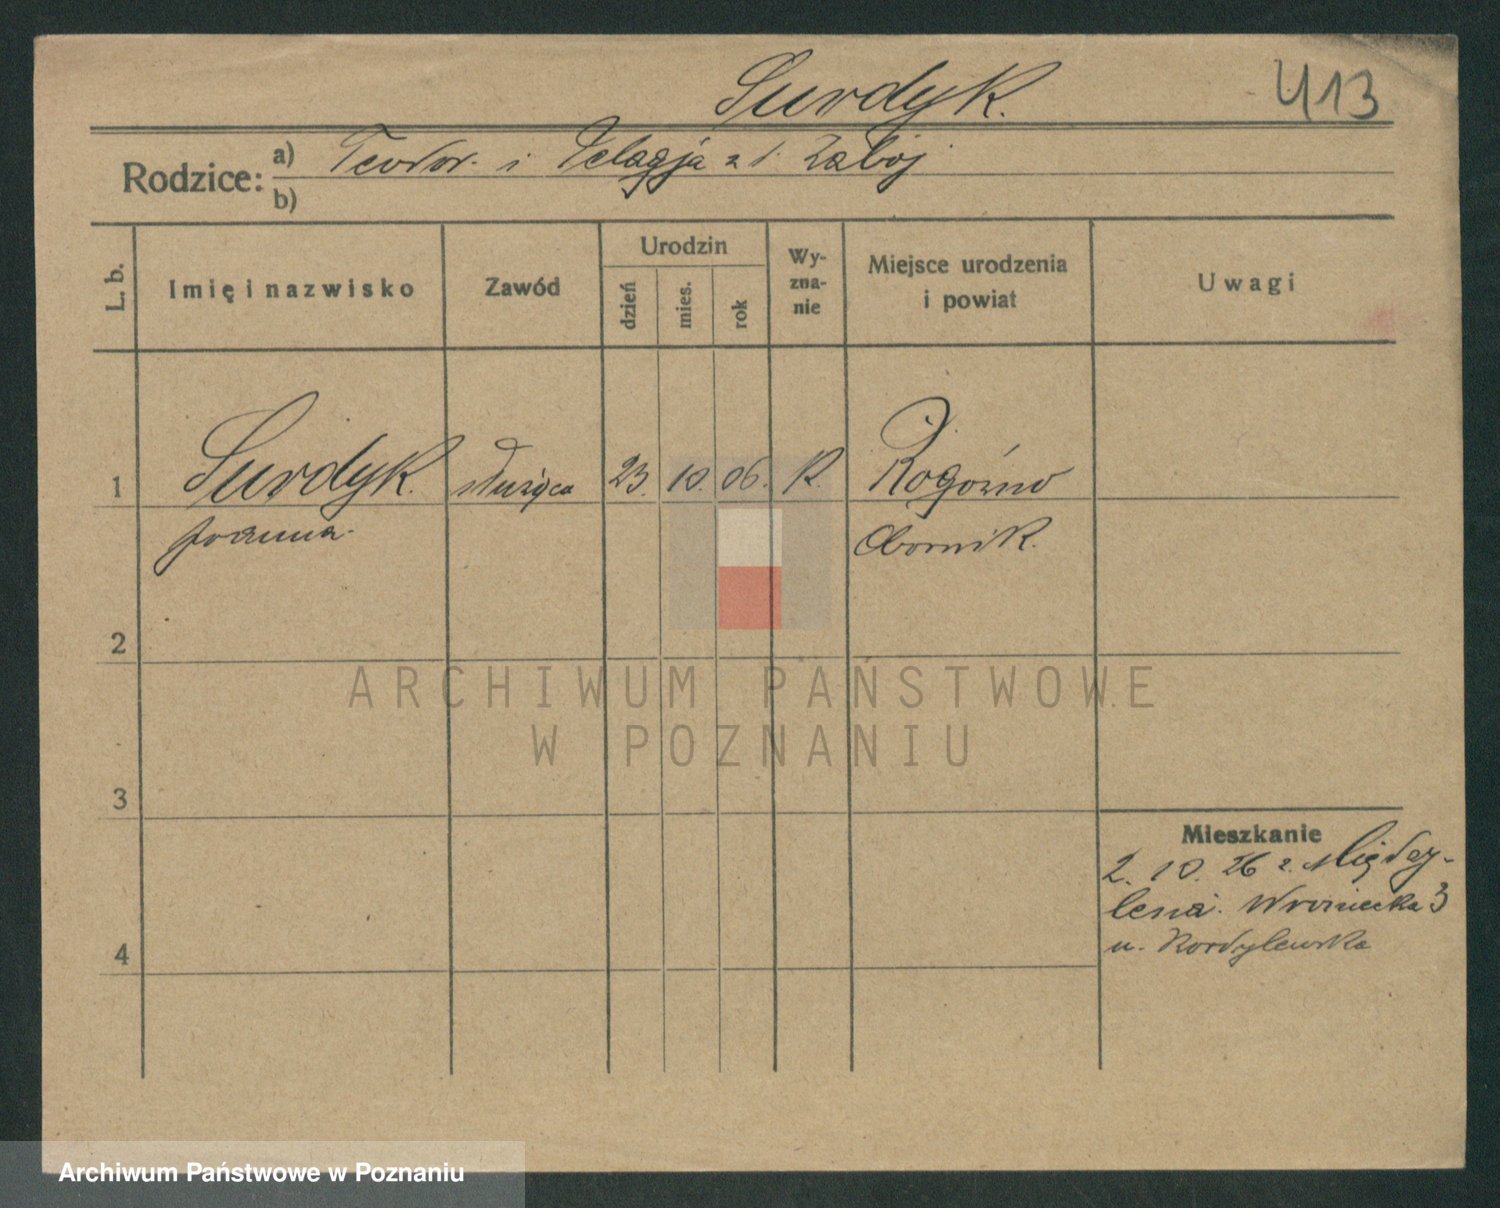 Surdyk.
413
Rodzice: a) Teodor. i Pelagja z d. Zabój
b)
L. b.
Imię i nazwisko
Zawód
Urodzin
dzień
mies.
rok
Wy-
zna-
nie
Miejsce urodzenia
i powiat
Uwagi
1 Surdyk. służąca 23. 10. 06. R. Rogoźno
Joanna. Obornik.
2
ARCHIWUM PAŃSTWOWE
W POZNANIU
3
Mieszkanie
2. 10. 26 z Między-
lesia. Wroniecka 3
4 u. Kordylewska
Archiwum Państwowe w Poznaniu